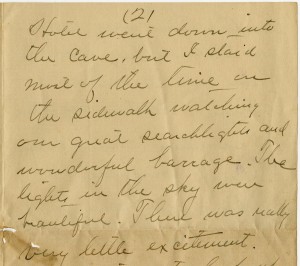 (2)
Hotel went down into
the cave, but I staid
most of the time on
the sidewalk watching
our great searchlights and
wonderful barrage. The
lights in the sky were
beautiful. There was really
very little excitement.